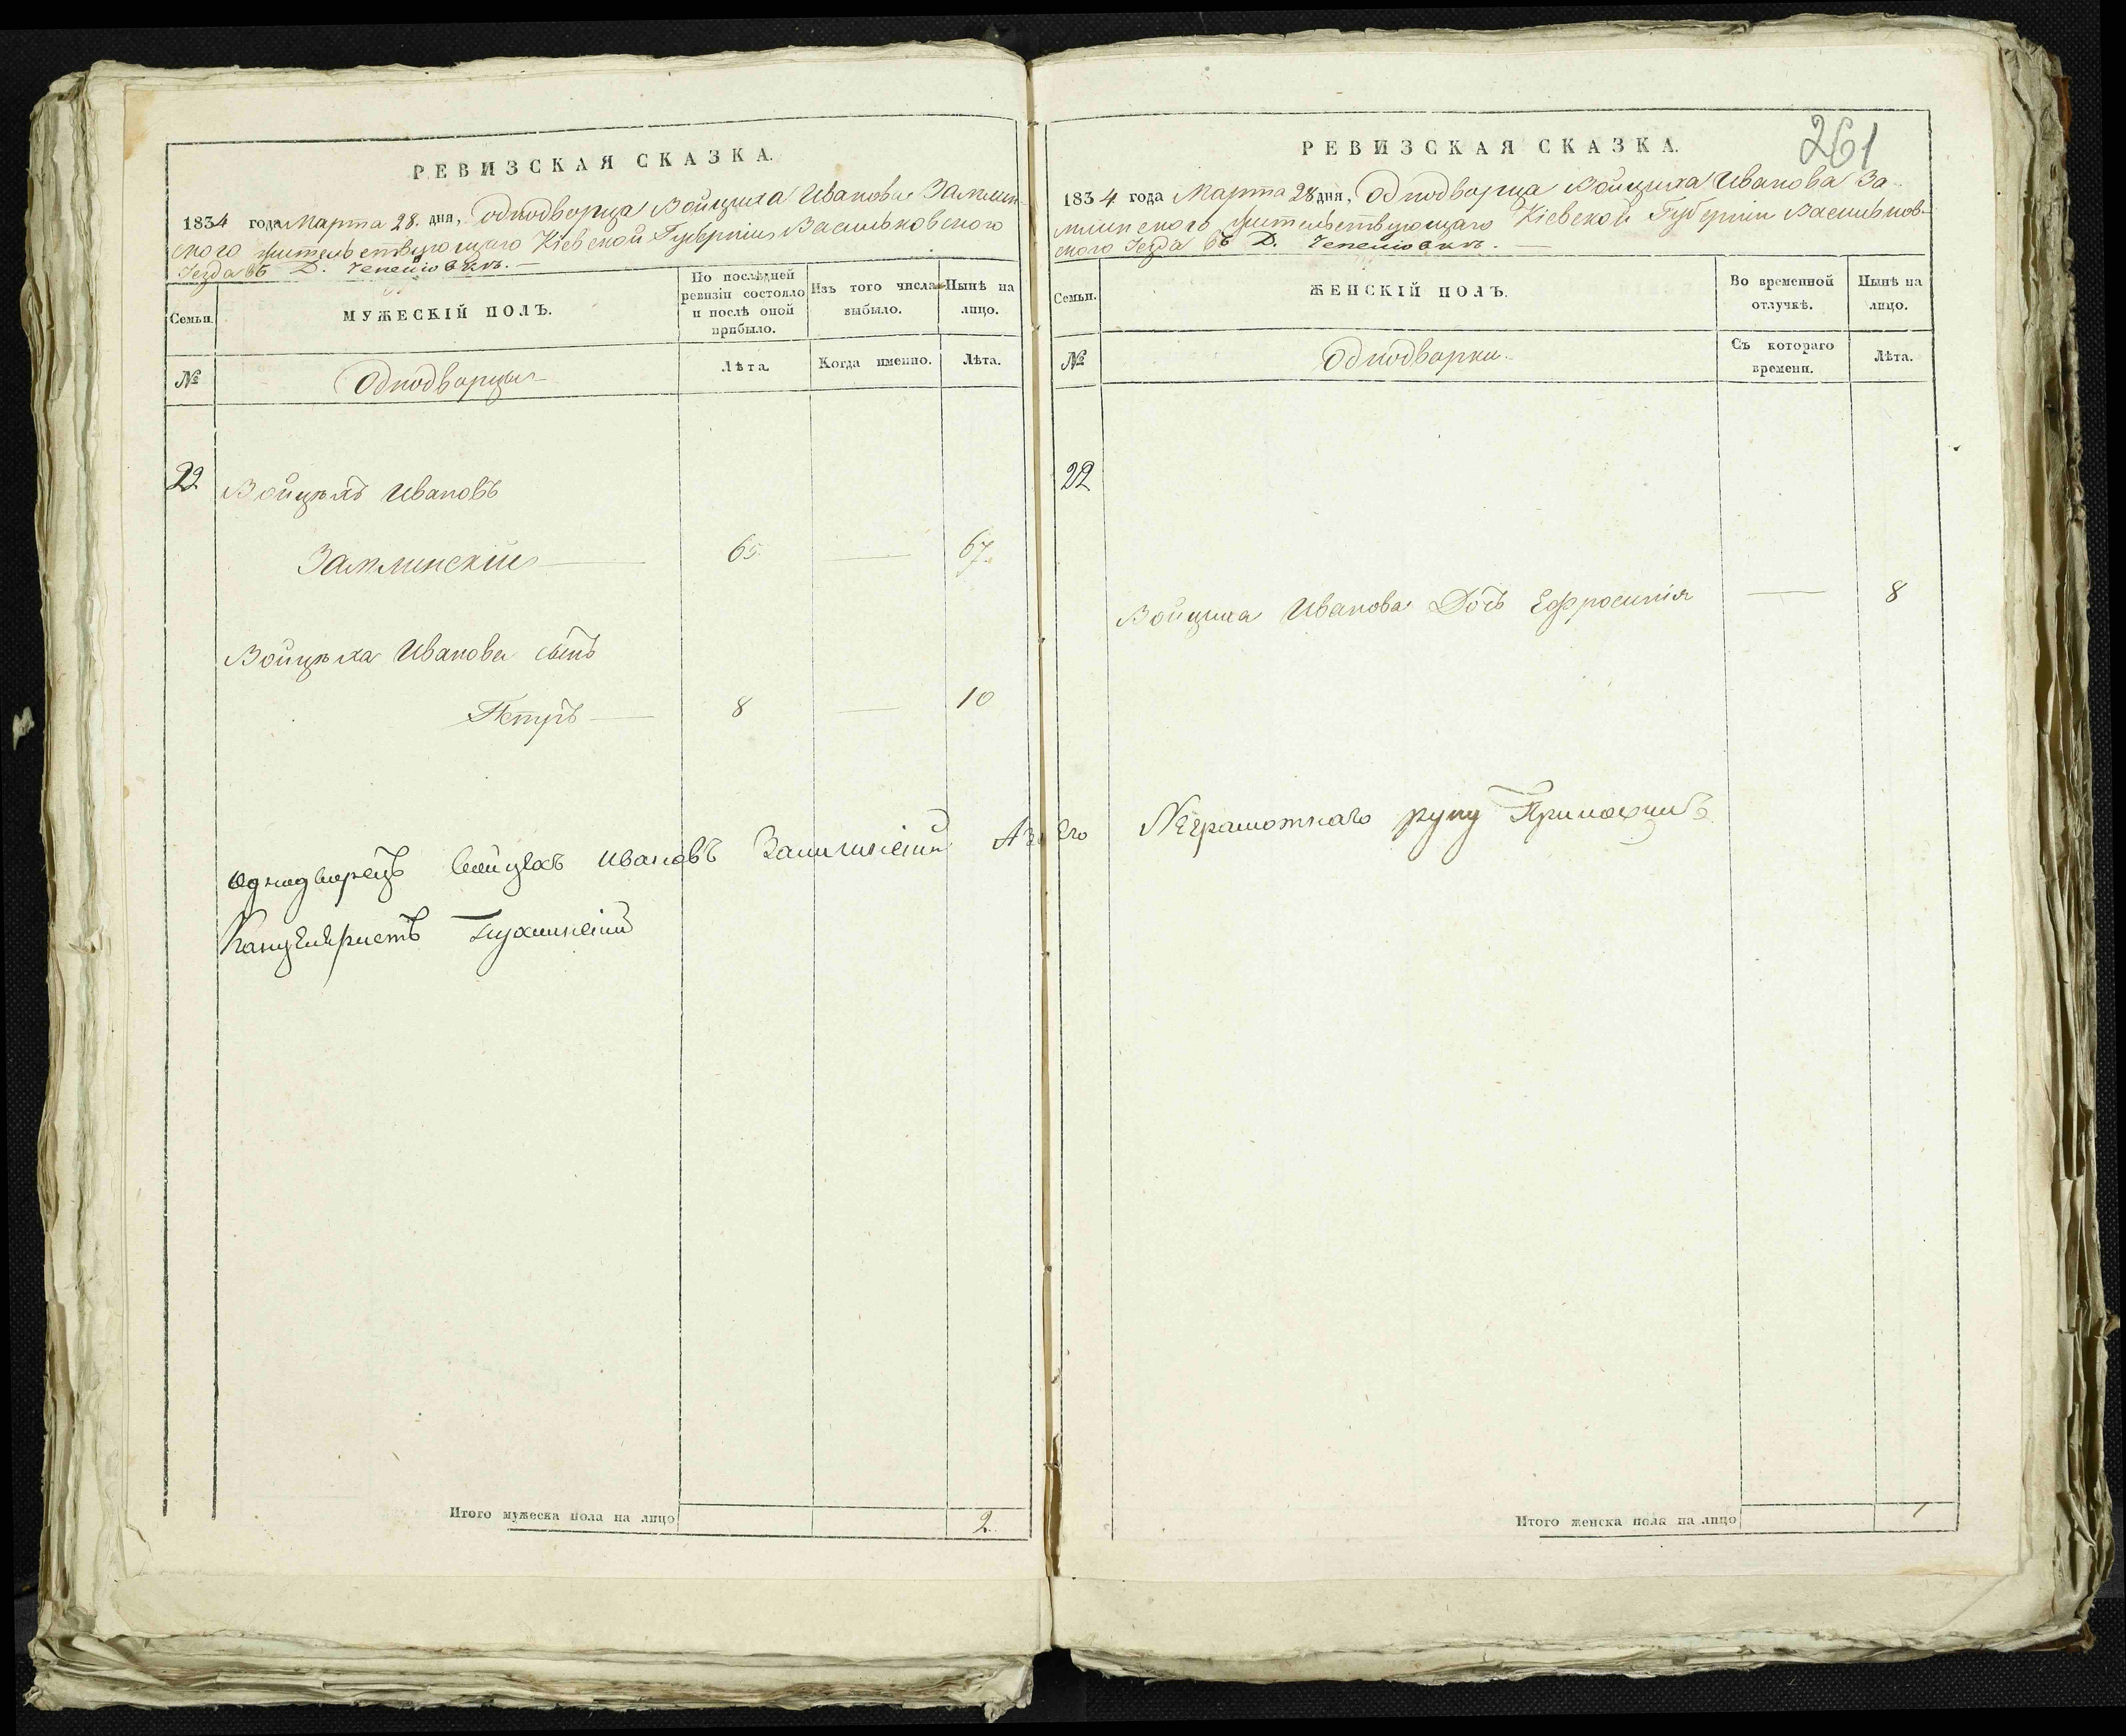 РЕВИЗСКАЯ СКАЗКА.
1834 года Марта 28. дня, Однодворца Войцеха Иванова
ского жительствующаго Кіевской Губерніи Васильковского
Уезда въ Д.
Семьи.
МУЖЕСКІЙ ПОЛЪ.
По послѣдней
ревизіи состояло
и послѣ оной
прибыло.
Изъ того числа
выбыло.
Нынѣ на
лицо.
№
Однодворцы
Лѣта.
Когда именно.
Лѣта.
22
Войцехъ Ивановъ
65. 67.
Войцеха Иванова сынъ
Петръ 8 10
Однодворецъ Войцехъ Ивановъ А за Его
Канцеляристъ
Итого мужеска пола на лицо 2.
261
РЕВИЗСКАЯ СКАЗКА.
1834 года Марта 28 дня, Однодворца Войцеха Иванова За-
жительствующаго Кіевской Губерніи Васильков-
ского Уезда въ Д.
Семьи.
ЖЕНСКІЙ ПОЛЪ.
Во временной
отлучкѣ.
Нынѣ на
лицо.
№
Однодворки.
Съ котораго
времени.
Лѣта.
22
Войцеха Иванова Дочь Ефросинія 8
Неграмотнаго руку Приложилъ
Итого женска пола на лицо 1